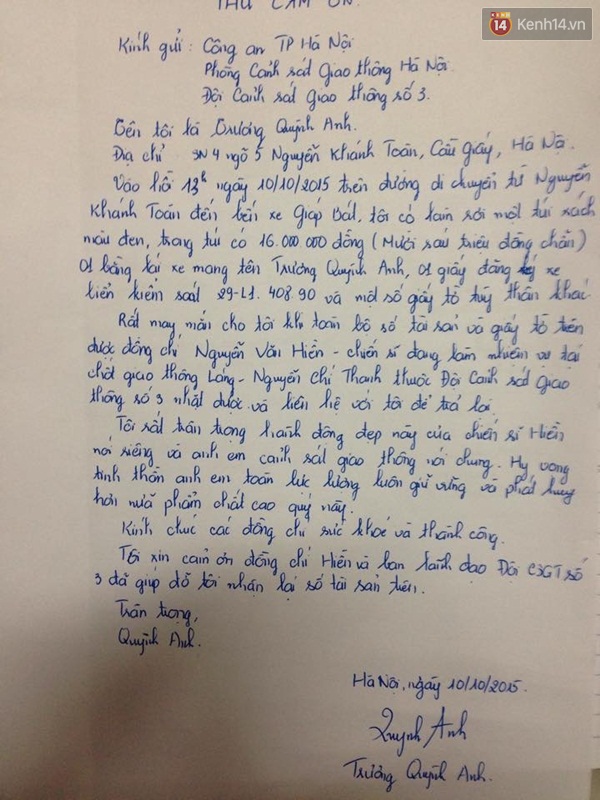 THƯ CẢM ƠN.
14 Kenh14.vn
Kính gửi: Công an TP Hà Nội
Phòng Cảnh sát Giao thông Hà Nội.
Đội Cảnh sát Giao thông số 3.
Tên tôi là Trương Quỳnh Anh.
Địa chỉ SN 4 ngõ 5 Nguyễn Khánh Toàn, Cầu Giấy, Hà Nội.
Vào hồi 13h ngày 10/10/2015 trên đường di chuyển từ Nguyễn
Khánh Toàn đến bến xe Giáp Bát, tôi có làm rơi một túi xách
màu đen, trong túi có 16.000.000 đồng (Mười sáu triệu đồng chẵn)
01 bằng lái xe mang tên Trương Quỳnh Anh, 01 giấy đăng ký xe
biển kiểm soát 29-L1. 408.90 và một số giấy tờ tuỳ thân khác
Rất may mắn cho tôi khi toàn bộ số tài sản và giấy tờ trên
được đồng chí Nguyễn Văn Hiển - chiến sĩ đang làm nhiệm vụ tại
chốt giao thông Láng - Nguyễn Chí Thanh thuộc Đội Cảnh sát Giao
thông số 3 nhặt được và liên hệ với tôi để trả lại.
Tôi rất trân trọng hành động đẹp này của chiến sĩ Hiển
nói riêng và anh em cảnh sát giao thông nói chung. Hy vọng
tinh thần anh em toàn lực lượng luôn giữ vững và phát huy
hơn nữa phẩm chất cao quý này.
Kính chúc các đồng chí sức khoẻ và thành công.
Tôi xin cảm ơn đồng chí Hiển và ban lãnh đạo Đội CSGT số
3 đã giúp đỡ tôi nhận lại số tài sản trên.
Trân trọng,
Quỳnh Anh.
Hà Nội, ngày 10/10/2015.
Quỳnh Anh
Trương Quỳnh Anh.